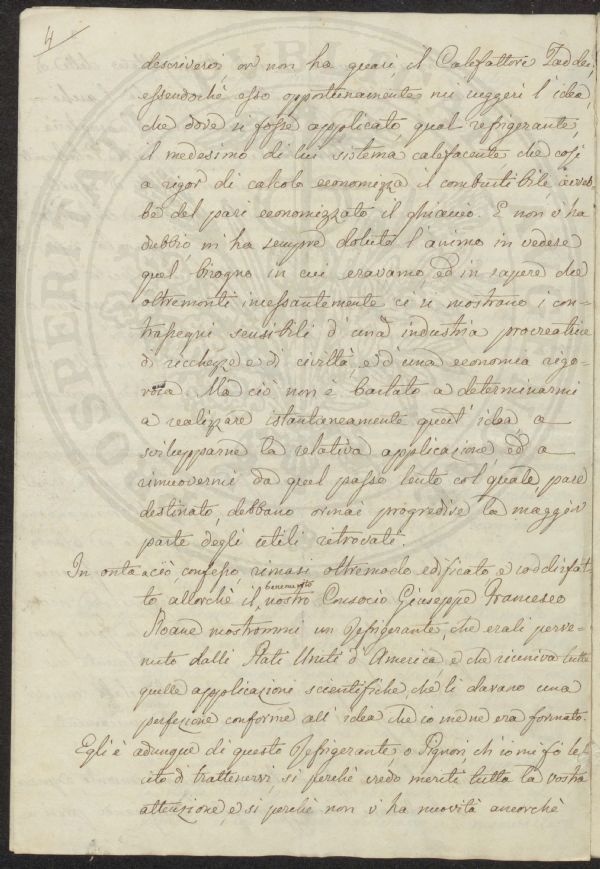 4
descriverei, or non ha guari, il Calefattore Taddei,
essendochè esso opportunamente mi suggerì l'idea,
che dove si fosse applicato, qual refrigerante,
il medesimo di lui sistema calefacente che così
a rigor di calcolo economizza il combustibile, avreb-
be del pari economizzato il ghiaccio. E non v'ha
dubbio, m'ha sempre doluto l'animo in vedere
quel bisogno in cui eravamo, ed in sapere che
oltremonti incessantemente ci si mostrano i con-
trassegni sensibili d'una industria procreatrice
di ricchezze e di civiltà, e d'una economia rigo-
rosa. Ma ciò non è bastato a determinarmi
a realizzare istantaneamente quest'idea, a
svilupparne la relativa applicazione, ed a
rimuovermi da quel passo lento col quale pare
destinato, debbano ormai progredire la maggior
parte degli utili ritrovati.
In onta a ciò, confesso, rimasi oltremodo edificato e soddisfat-
to allorchè il benemerito nostro Consocio Giuseppe Francesco
Roane mostrommi un Refrigerante, che erali perve-
nuto dalli Stati Uniti d'America, e che riceveva tutte
quelle applicazioni scientifiche, che li davano una
perfezione conforme all'idea che io me ne era formato.
Egli è adunque di questo Refrigerante, o Signori, ch'io mi fò le-
cito di trattenervi, sì perchè credo meriti tutta la vostra
attenzione, e sì perchè non v'ha novità ancorchè